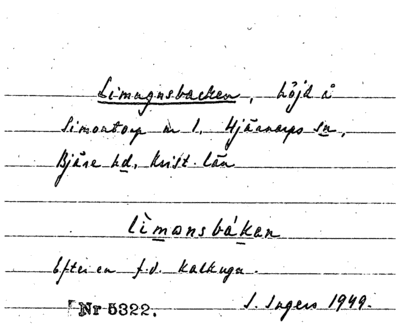 Limugnsbacken, höjd å
Simontorp nr 1, Hjärnarps sn,
Bjäre hd, Krist. län
lìmonsbákan
Efter en f.d. kalkugn.
Nr 5322. I. Ingers 1949.